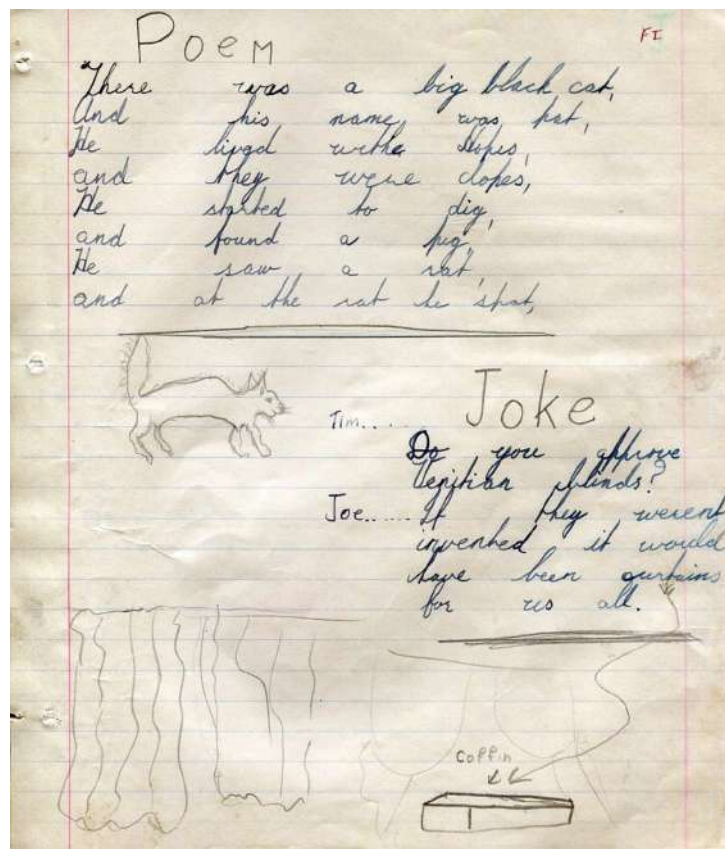 Poem
FI
There was a big black cat,
And his name, was pat,
He lived withe Hopes,
and they were dopes,
He started to dig,
and found a pig,
He saw a rat,
and at the rat he spat,
Joke
Tim.....
Do you approve
Venitian blinds?
Joe...... If they werent
invented it would
have been curtains
for us all.
Coffin